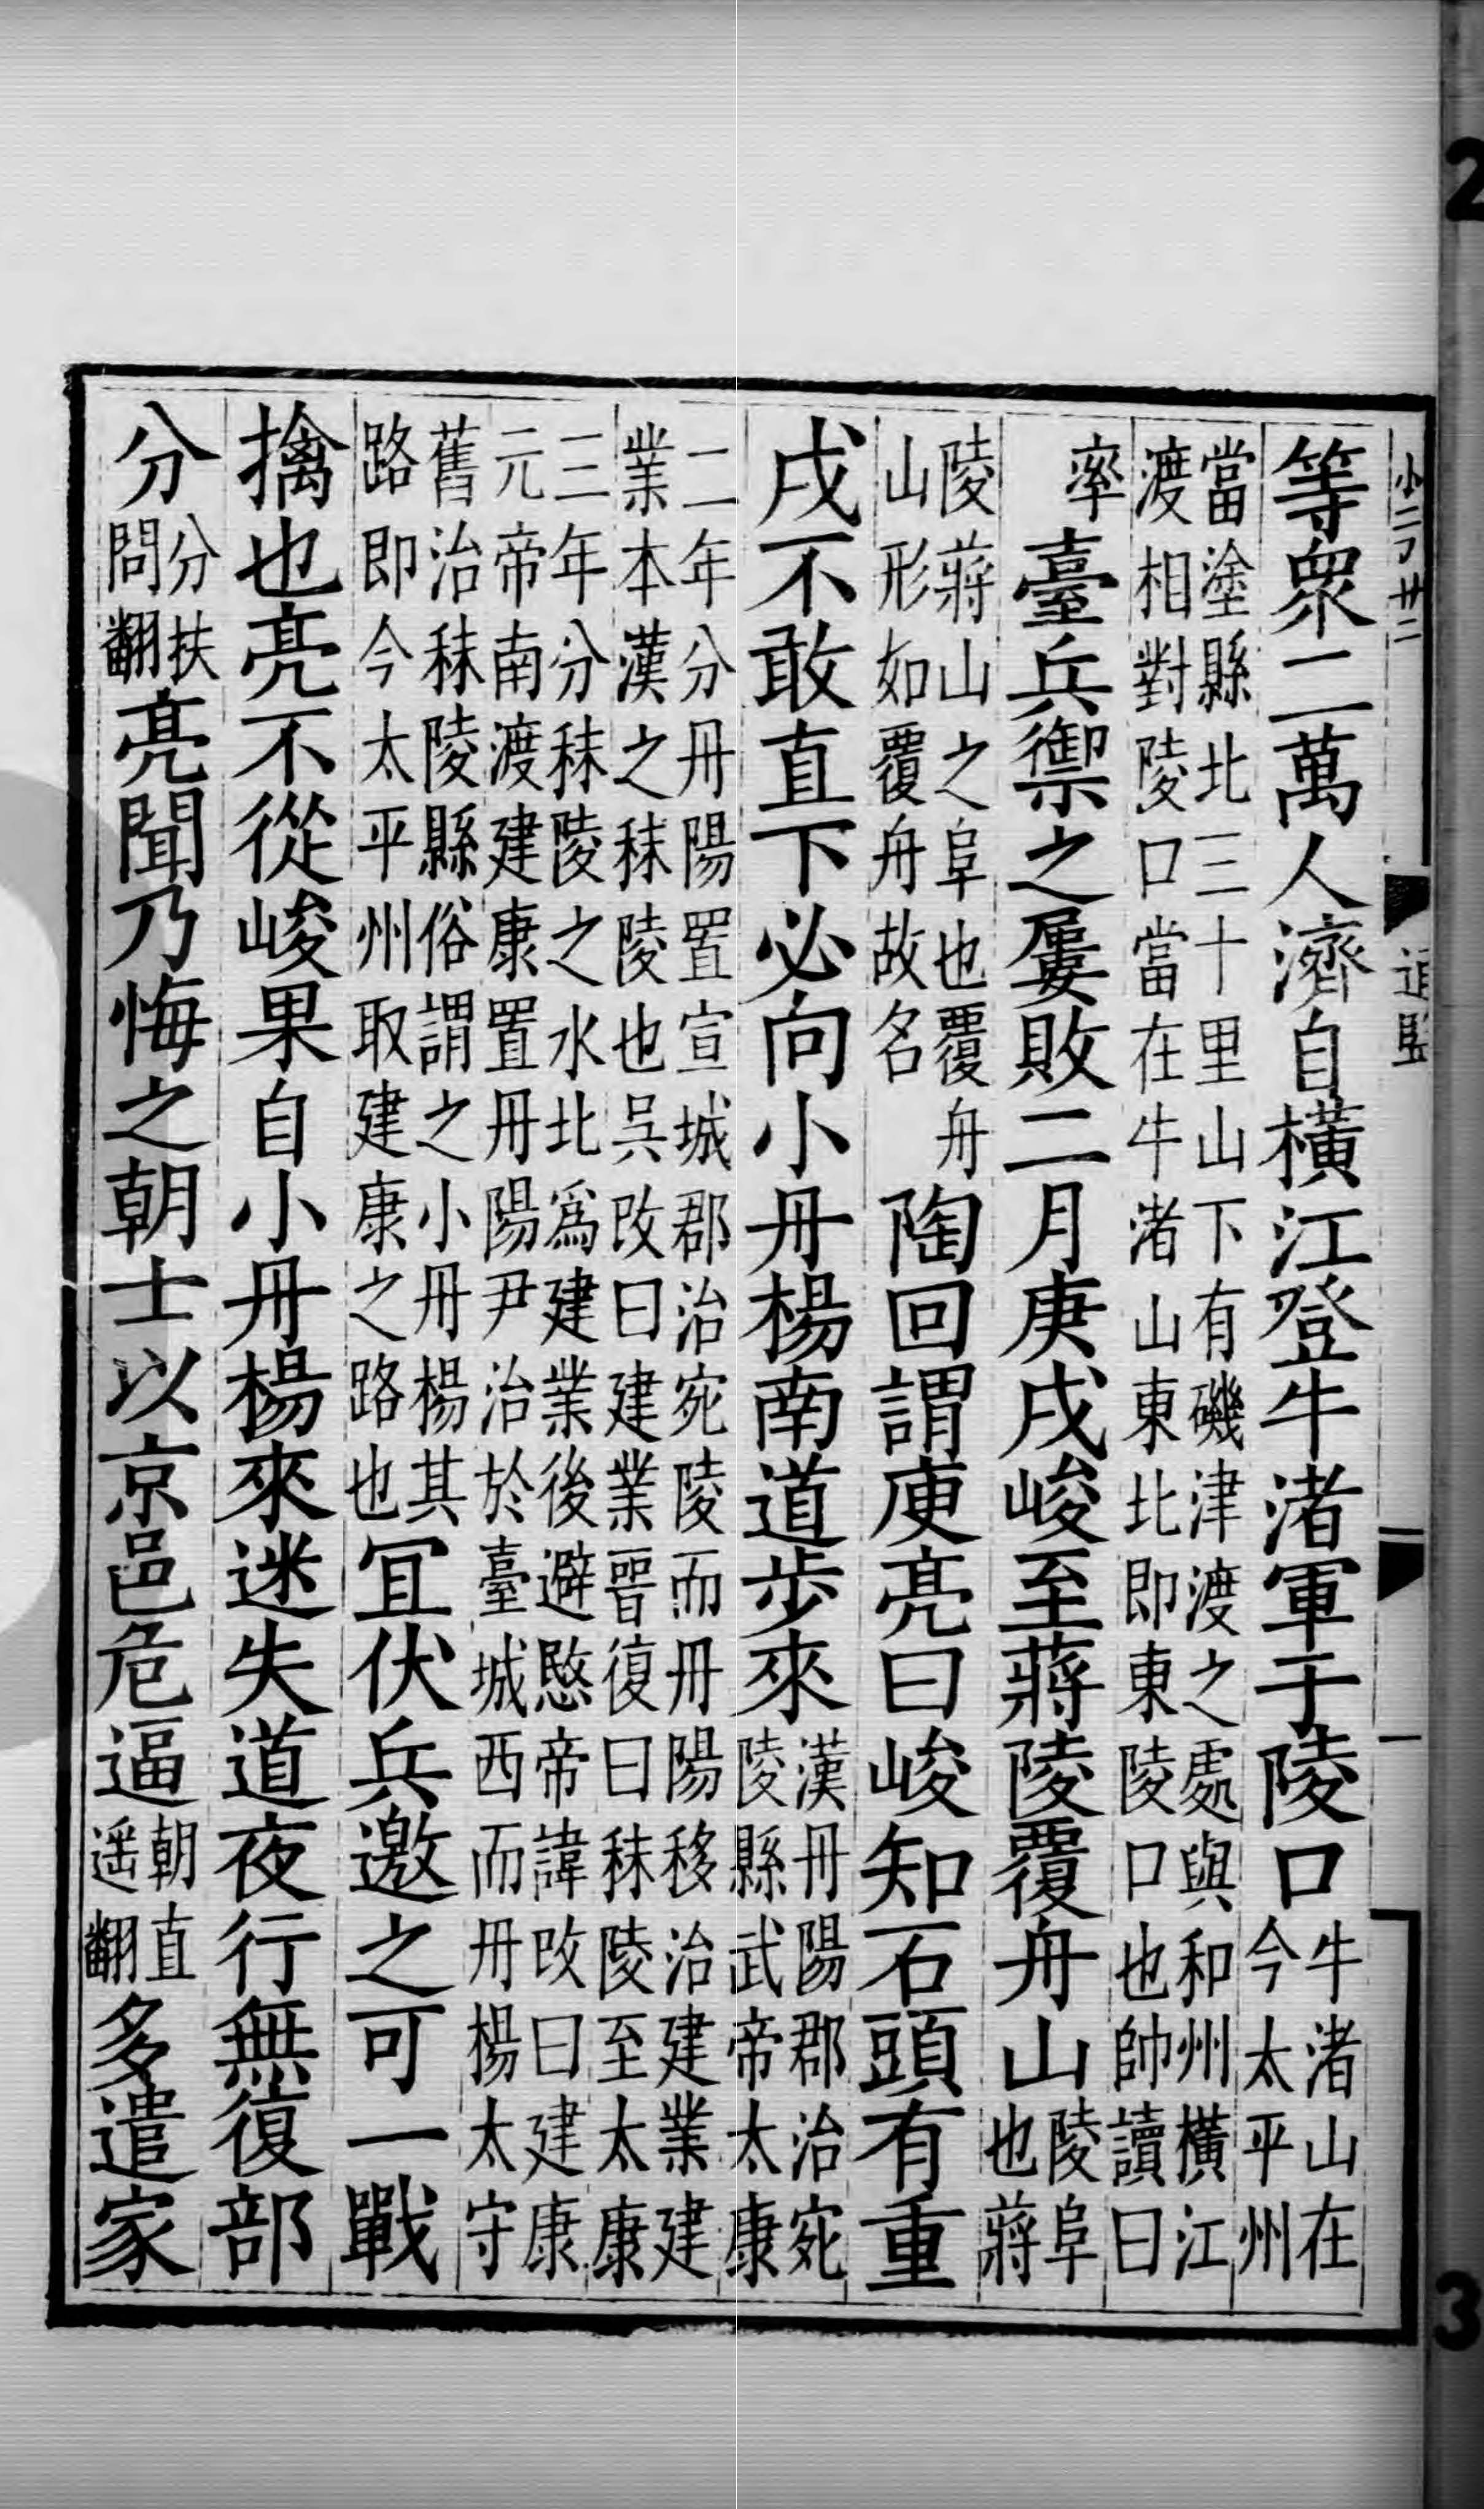 等衆二萬人濟自橫江登牛渚軍于陵口
牛渚山在
今太平州
當塗縣北三十里山下有磯津渡之處與和州橫江
渡相對陵口當在牛渚山東北即東陵口也帥讀曰
率
臺兵禦之屢敗二月庚戌峻至蔣陵覆舟山
陵阜
也蔣
陵蔣山之阜也覆舟
山形如覆舟故名
陶回謂庾亮曰峻知石頭有重
戍不敢直下必向小丹楊南道步來
漢丹陽郡治宛
陵縣武帝太康
二年分丹陽置宣城郡治宛陵而丹陽移治建業建
業本漢之秣陵也吳改曰建業晉復曰秣陵至太康
三年分秣陵之水北爲建業後避愍帝諱改曰建康
元帝南渡建康置丹陽尹治於臺城西而丹楊太守
舊治秣陵縣俗謂之小丹楊其
路即今太平州取建康之路也
宜伏兵邀之可一戰
擒也亮不從峻果自小丹楊來迷失道夜行無復部
分
分扶
問翻
亮聞乃悔之朝士以京邑危逼
朝直
遥翻
多遣家